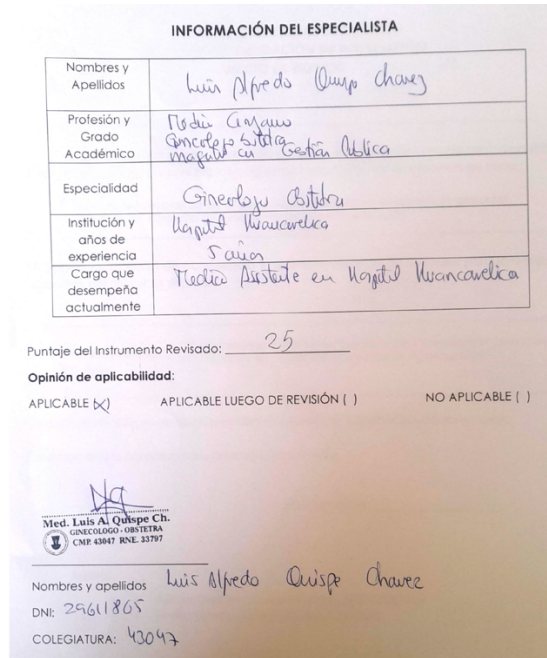 INFORMACIÓN DEL ESPECIALISTA
Nombres y
Apellidos
Luis Alfredo Quispe Chavez
Profesión y
Grado
Académico
Medico Cirujano
Ginecologo Obstetra
Magister en Gestión Publica
Especialidad
Ginecologo Obstetra
Institución y
años de
experiencia
Hospital Huancavelica
5 años
Cargo que
desempeña
actualmente
Medico Asistente en Hospital Huancavelica
Puntaje del Instrumento Revisado: 25
Opinión de aplicabilidad:
APLICABLE (X) APLICABLE LUEGO DE REVISIÓN ( ) NO APLICABLE ( )
Med. Luis A. Quispe Ch.
GINECOLOGO - OBSTETRA
CMP. 43047 RNE. 33797
Nombres y apellidos Luis Alfredo Quispe Chavez
DNI: 29611865
COLEGIATURA: 43047